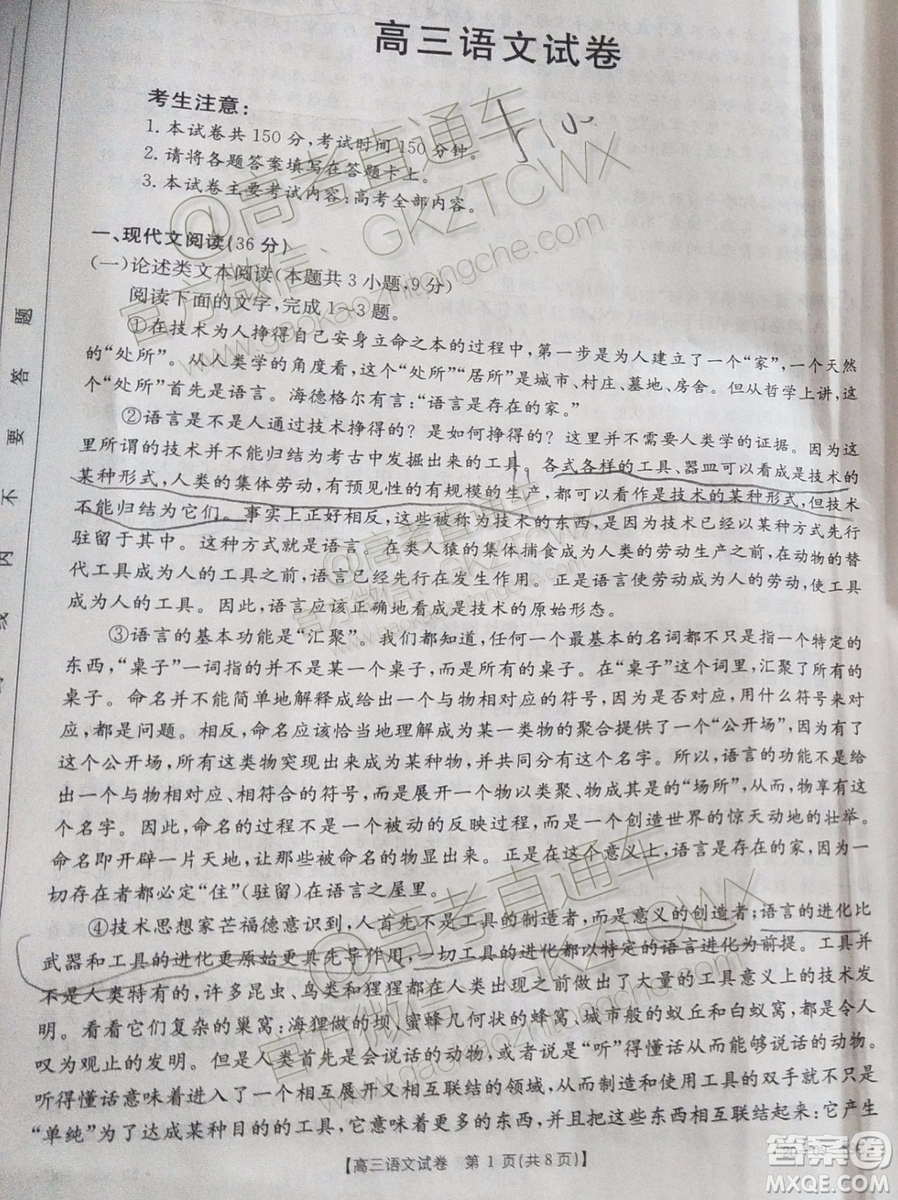 高三语文试卷
考生注意:
1. 本试卷共150分,考试时间150分钟。
2. 请将各题答案填写在答题卡上。
3. 本试卷主要考试内容:高考全部内容。
一、现代文阅读(36分)
(一)论述类文本阅读(本题共3小题,9分)
阅读下面的文字,完成1~3题。
①在技术为人挣得自己安身立命之本的过程中,第一步是为人建立了一个“家”,一个天然
的“处所”。从人类学的角度看,这个“处所”“居所”是城市、村庄、墓地、房舍。但从哲学上讲,这
个“处所”首先是语言。海德格尔有言:“语言是存在的家。”
②语言是不是人通过技术挣得的?是如何挣得的?这里并不需要人类学的证据。因为这
里所谓的技术并不能归结为考古中发掘出来的工具。各式各样的工具、器皿可以看成是技术的
某种形式,人类的集体劳动,有预见性的有规模的生产,都可以看作是技术的某种形式,但技术
不能归结为它们。事实上正好相反,这些被称为技术的东西,是因为技术已经以某种方式先行
驻留于其中。这种方式就是语言。在类人猿的集体捕食成为人类的劳动生产之前,在动物的替
代工具成为人的工具之前,语言已经先行在发生作用。正是语言使劳动成为人的劳动,使工具
成为人的工具。因此,语言应该正确地看成是技术的原始形态。
③语言的基本功能是“汇聚”。我们都知道,任何一个最基本的名词都不是指一个特定的
东西,“桌子”一词指的并不是某一张特定的桌子,而是所有的桌子。在“桌子”这个词里,汇聚了
桌子。命名并不能简单地解释成给出一个与物相对应的符号,因为是否对应,用什么符号去对
应,都是问题。相反,命名应该恰当地理解成为某一类物的聚合提供了一个“公开场”,在这样的
一个公开场,所有这类物突现出来成为某种物,并因此享有这个名字。所以,语言的功能不只是
给出一个与物相对应、相符合的符号,而是展开一个物以类聚、物成其为物的“场所”,从而物享有这
个名字。因此,命名的过程不是一个被动的反映过程,而是一个创造世界的惊天动地的壮举。
命名即开辟一片天地,让在其中的被命名的物显出来。正是在这个意义上,语言是存在的家,一
切存在者都必定“住”(驻留)在语言之屋里。
④技术思想家芒福德意识到,人首先不是工具的制造者,而是意义的创造者;语言的进化比
武器和工具的进化更原始更具先导作用,一切工具的进化都以特定的语言进化为前提。工具并
不是人类特有的,许多昆虫、鸟类和猩猩都在使用工具方面做出了大量的工具意义上的技术发
明。看看它们复杂的巢窝:海狸做的坝、蜜蜂几何状的蜂窝、城市般的蚁丘和白蚁窝,都是令人
叹为观止的发明。但是人类首先是会说话的动物,或者是“听”得懂话的动物。
听得懂话意味着进入了一个相互展开又相互联结的领域,从而制造和使用工具的双手就不只是
“单纯”为了达成某种目的的工具,它意味着更多的东西,并且把这些东西相互联结起来:它产生
【高三语文试卷 第1页(共8页)】
@高考直通车
官方微信:GKZTCWX
www.gaokaozhitongche.com
答案圈
MXQE.COM